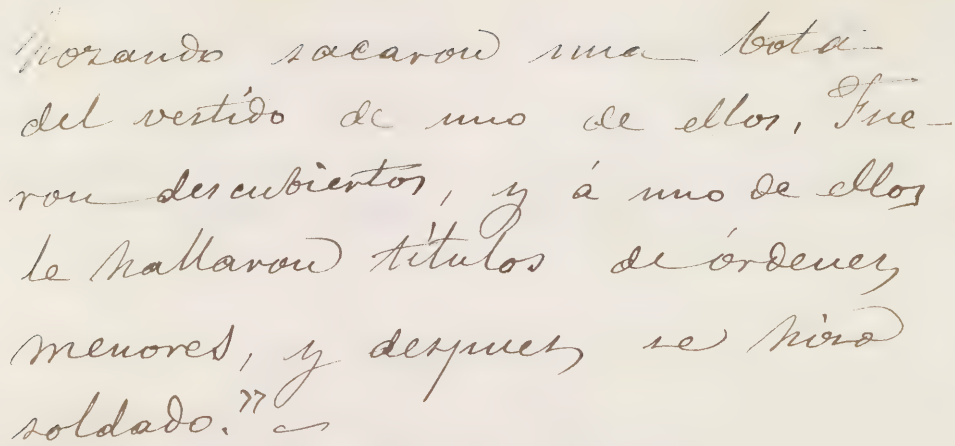 sacaron una bota
del vestido de uno de ellos. Fue-
ron descubiertos, y á uno de ellos
le hallaron títulos de órdenes
menores, y despues se hizo
soldado."